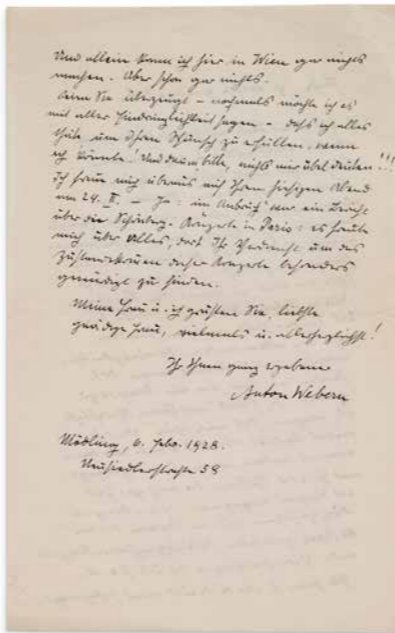 Und allein kann ich hier in Wien gar nichts
machen. Aber schon gar nichts.
Seien Sie überzeugt – nochmals möchte ich es
mit aller Eindringlichkeit sagen – dass ich alles
thäte um Ihren Wunsch zu erfüllen, wenn
ich könnte! Und darum bitte, nichts mir übel deuten!!!
Ich freue mich überaus auf Ihren hiesigen Abend
am 24. II. – Ja: im Anbruch war ein Bericht
über die Schönberg-Konzerte in Paris: es freute
mich über Alles, dort Ihr Verdienst um das
Zustandekommen dieser Konzerte besonders
gewürdigt zu finden.
Meine Frau u. ich grüßen Sie, liebste
gnädige Frau, vielmals u. allerherzlichst!
Ihr Ihnen ganz ergebener
Anton Webern
Mödling, 6. Febr. 1928.
Neusiedlerstraße 58